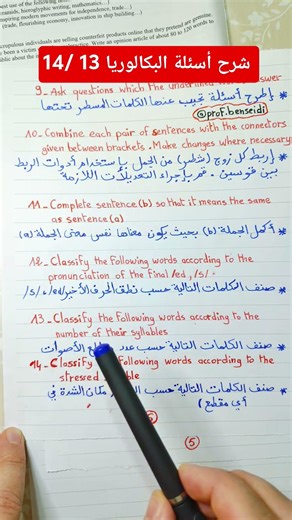 شرح أسئلة البكالوريا 13 /14
ramids, hieroglyphic writing, mathematics…)
spiring modern movements for independence, trade…)
(trade, flourishing economy, innovation in ship building…)
crupulous individuals are selling counterfeit products online that they pretend are genuine.
Write an opinion article of about 80 to 120 words to
9. Ask questions which the underlined
@prof.benseidi
إطرح أسئلة تجيب عنها الكلمات المسطر تحتها
10- Combine each pair of sentences with the connectors
given between brackets. Make changes where necessary
إربط كل زوج (شطر) من الجمل باستخدام أدوات الربط
بين قوسين. قم بإجراء التعديلات اللازمة
11- Complete sentence (b) so that it means the same
as sentence (a)
أكمل الجملة (b) بحيث يكون معناها نفس معنى الجملة (a)
12- Classify the following words according to the
pronunciation of the final /ed, /s/.
صنف الكلمات التالية حسب نطق الحرف الأخير
13- Classify the following words according to the
number of their syllables
صنف الكلمات التالية حسب عدد الأصوات
14- Classify the following words according to the
stressed
صنف الكلمات التالية حسب مكان الشدة في
أي مقطع)
5